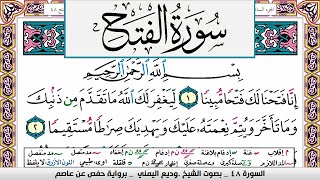 سورة الفتح
بِسْمِ ٱللَّهِ ٱلرَّحْمَٰنِ ٱلرَّحِيمِ
إِنَّا فَتَحْنَا لَكَ فَتْحًا مُّبِينًا ۝١ لِّيَغْفِرَ لَكَ ٱللَّهُ مَا تَقَدَّمَ مِن ذَنۢبِكَ
وَمَا تَأَخَّرَ وَيُتِمَّ نِعْمَتَهُۥ عَلَيْكَ وَيَهْدِيَكَ صِرَٰطًا مُّسْتَقِيمًا ۝٢
السورة ٤٨ . بصوت الشيخ .وديع اليمني . برواية حفص عن عاصم